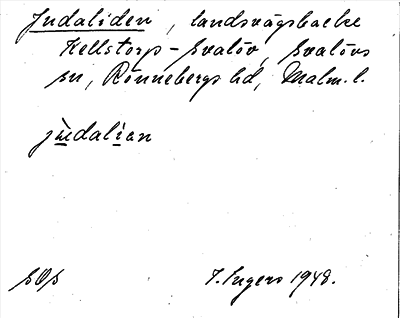 Judaliden, landsvägsbacke
Kellstorp-Svalöv, Svalövs
sn, Rönnebergs hd, Malm. l.
jùdalian
SOS
I. Ingers 1948.